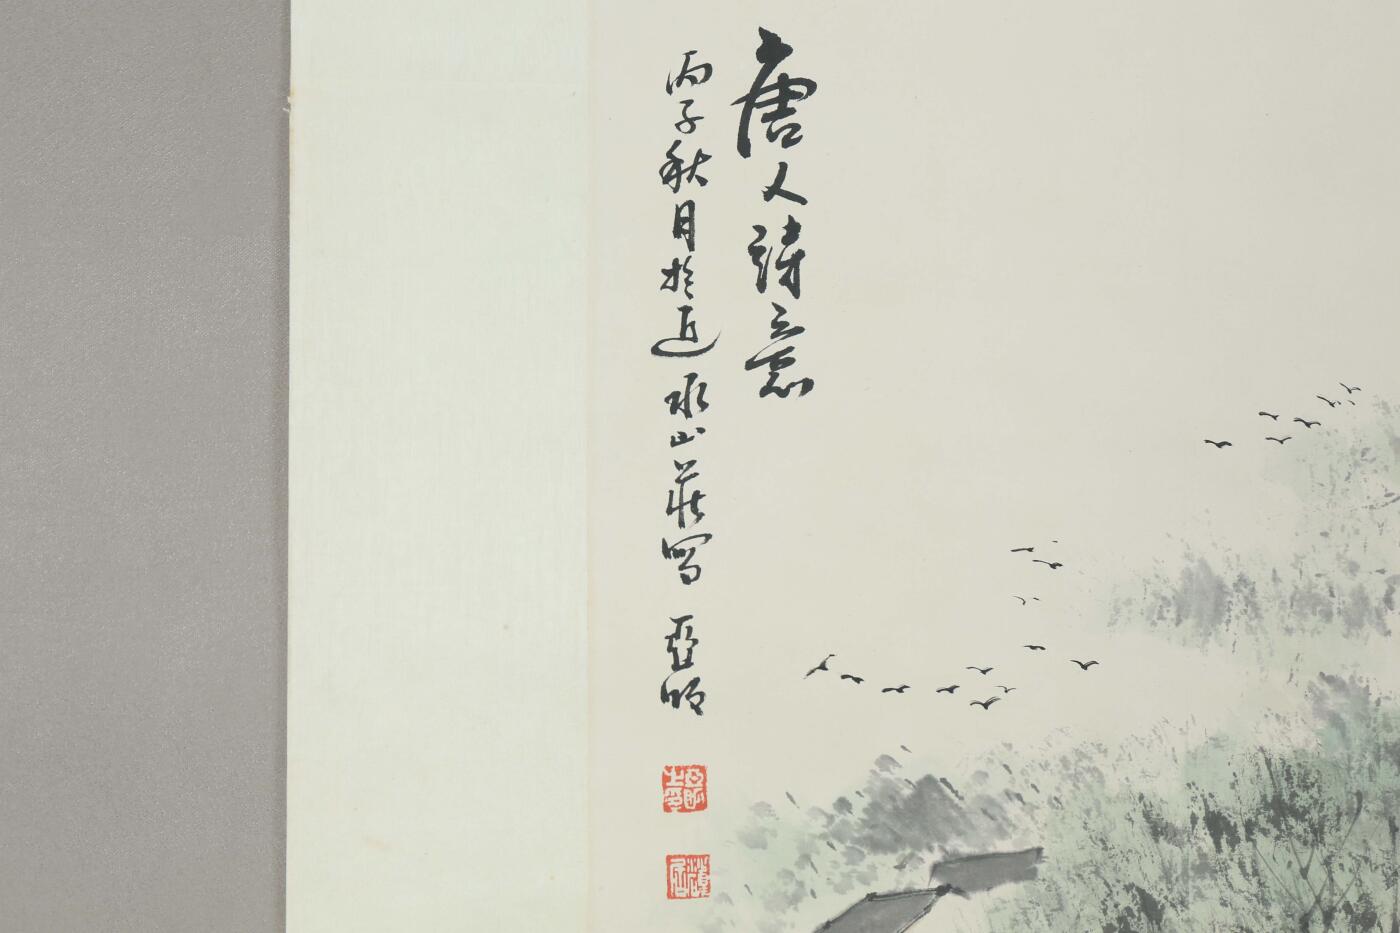 唐人詩意
丙子秋月於近水山莊寫 亞明